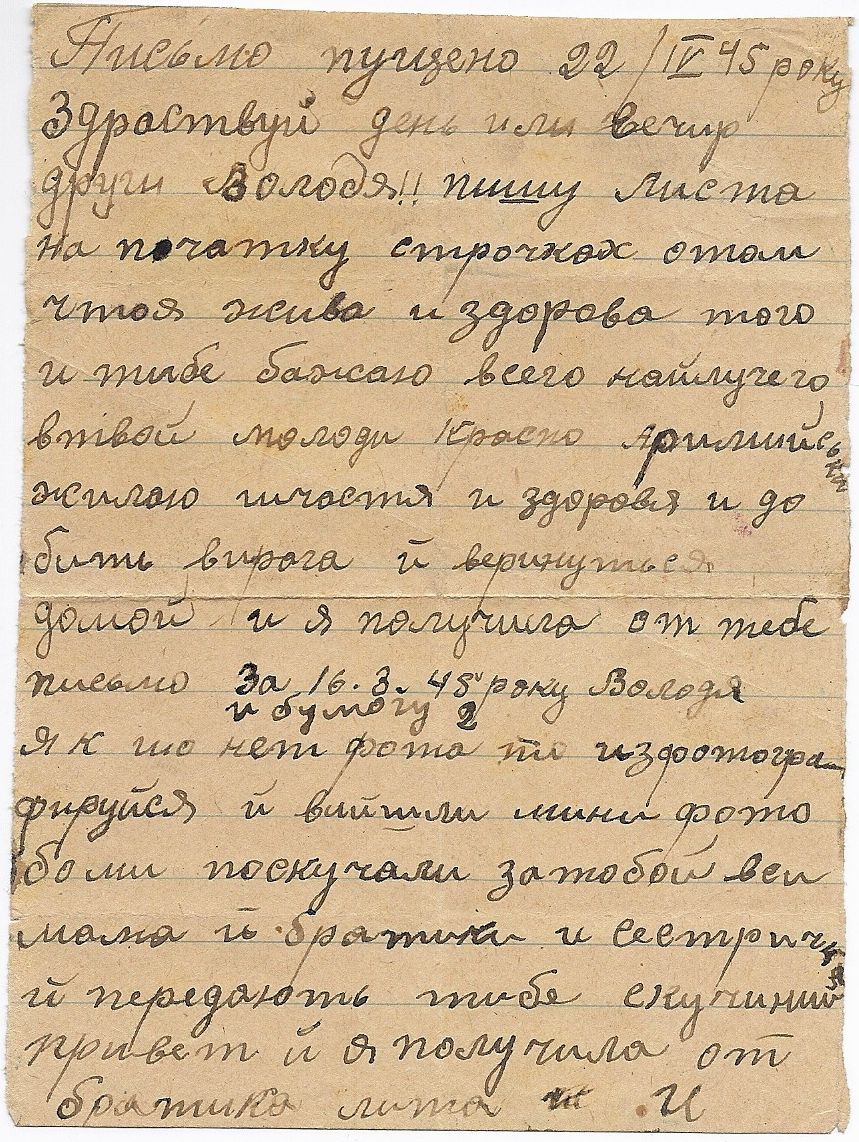 Письмо пущено 22/IV 45 року
Здраствуй день или вечир
други Володя!! пишу листа
на початку строчках отом
чтоя жива и здорова того
и тибе бажаю всего найлучего
втвой молоди Красно Армийськи
жилаю шчастя и здоровя и до
бить вирага й веринуться
домой и я получила от тебе
письмо За 16.3.45 року Володя
и бумогу 2
як шо нет фота то изфотогра
фируйся й вийшли мини фото
бо ми поскучали затобой вси
мама й братики и сестрички
й передають тибе скучиний
привет й я получила от
братика лита И